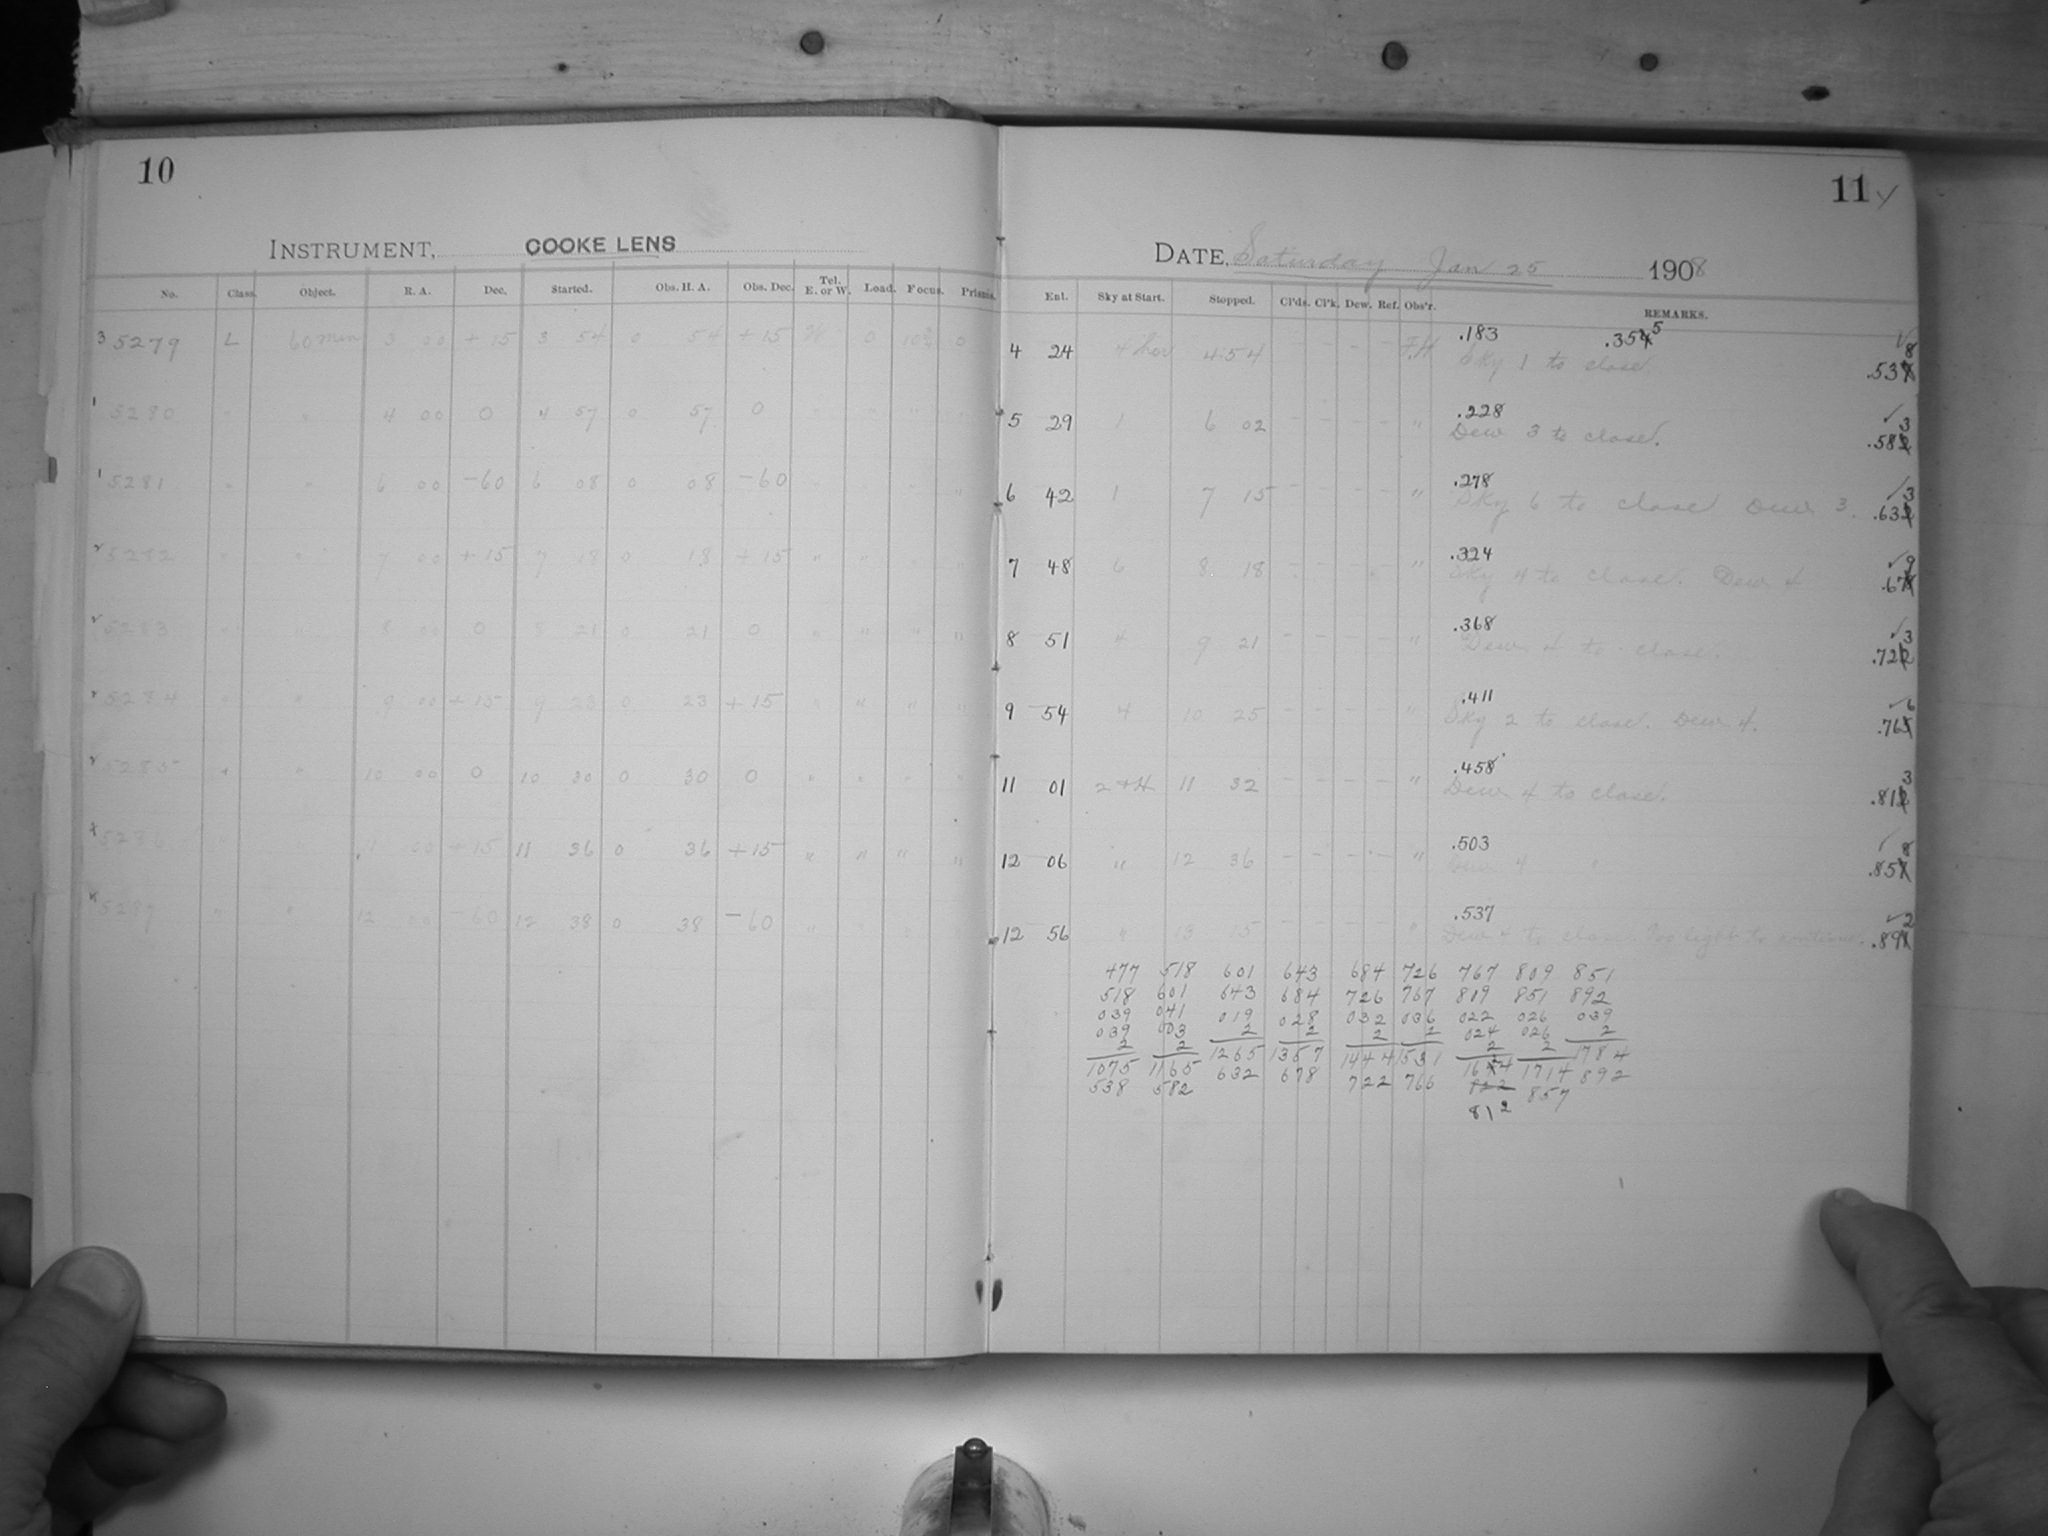 10
11
INSTRUMENT, COOKE LENS
DATE, Saturday Jan 25 1908
No. Class. Object. R. A. Dec. Started. Obs. H. A. Obs. Dec. Tel. E. or W. Load. Focus. Prisms. Ent. Sky at Start. Stopped. Cl'ds. Cl'k. Dew. Ref. Obs'r. REMARKS.
.183 .354 5
3 5279 L 60 min 3 00 +15 3 54 0 54 +15 0 0 4 24 4 54 F.H Sky 1 to close. .537 8
.228
1 5280 " " 4 00 0 4 57 0 57 0 " " " " 5 29 1 6 02 - - - - " Dew 3 to close. .582 3
.278
1 5281 " " 6 00 -60 6 08 0 08 -60 " " " " 6 42 1 7 15 - - - - " Sky 6 to close Dew 3. .632 3
.324
5282 " " 7 00 +15 7 18 0 18 +15 " " " " 7 48 6 8 18 - - - - " Sky 4 to close. Dew 4 .678 9
.368
5283 " " 8 00 0 8 21 0 21 0 " " " " 8 51 4 9 21 - - - - " Dew 4 to close. .722 3
.411
5284 " " 9 00 +15 9 23 0 23 +15 " " " " 9 54 4 10 25 - - - - " Sky 2 to close. Dew 4. .765 6
.458
5285 " " 10 00 0 10 30 0 30 0 " " " " 11 01 2 + H 11 32 - - - - " Dew 4 to close. .812 3
.503
5286 " " 11 00 +15 11 36 0 36 +15 " " " " 12 06 " 12 36 - - - - " Dew 4 " .857 8
.537
5287 " " 12 00 -60 12 38 0 38 -60 " " " " 12 56 " 13 15 - - - - " Dew 4 to close Too light to continue. .891 2
477 518 601 643 684 726 767 809 851
518 601 643 684 726 767 809 851 892
039 041 019 028 032 036 022 026 039
039 003 2 2 2 2 024 026 2
2 2 1265 1357 1444 1531 2 2 1784
1075 1165 632 678 722 766 1624 1714 892
538 582 822 857
812